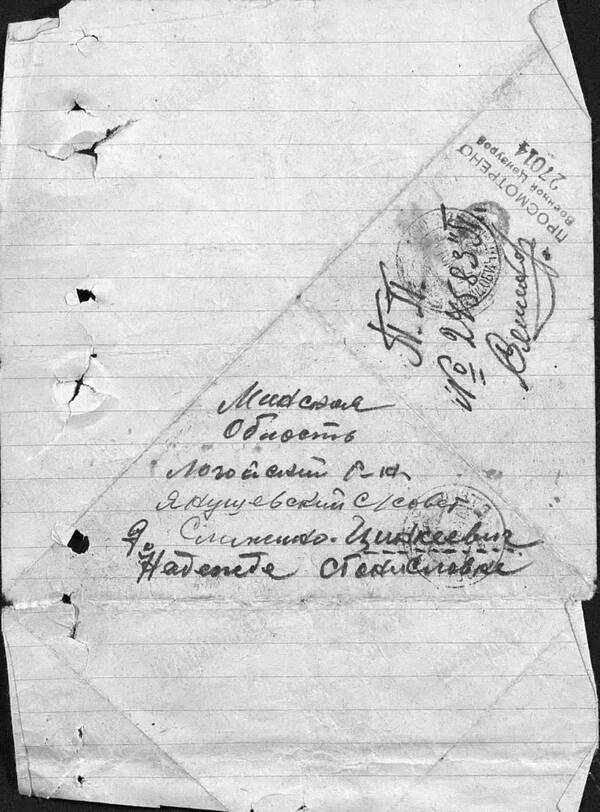 ПРОСМОТРЕНО
Военной Цензурой
27014
П. П.
№ 24583 "Т"
Минская
Область
Логойский р-н
Янушевский с/совет
д. Слижино - Цинкевич
Надежде Станиславне